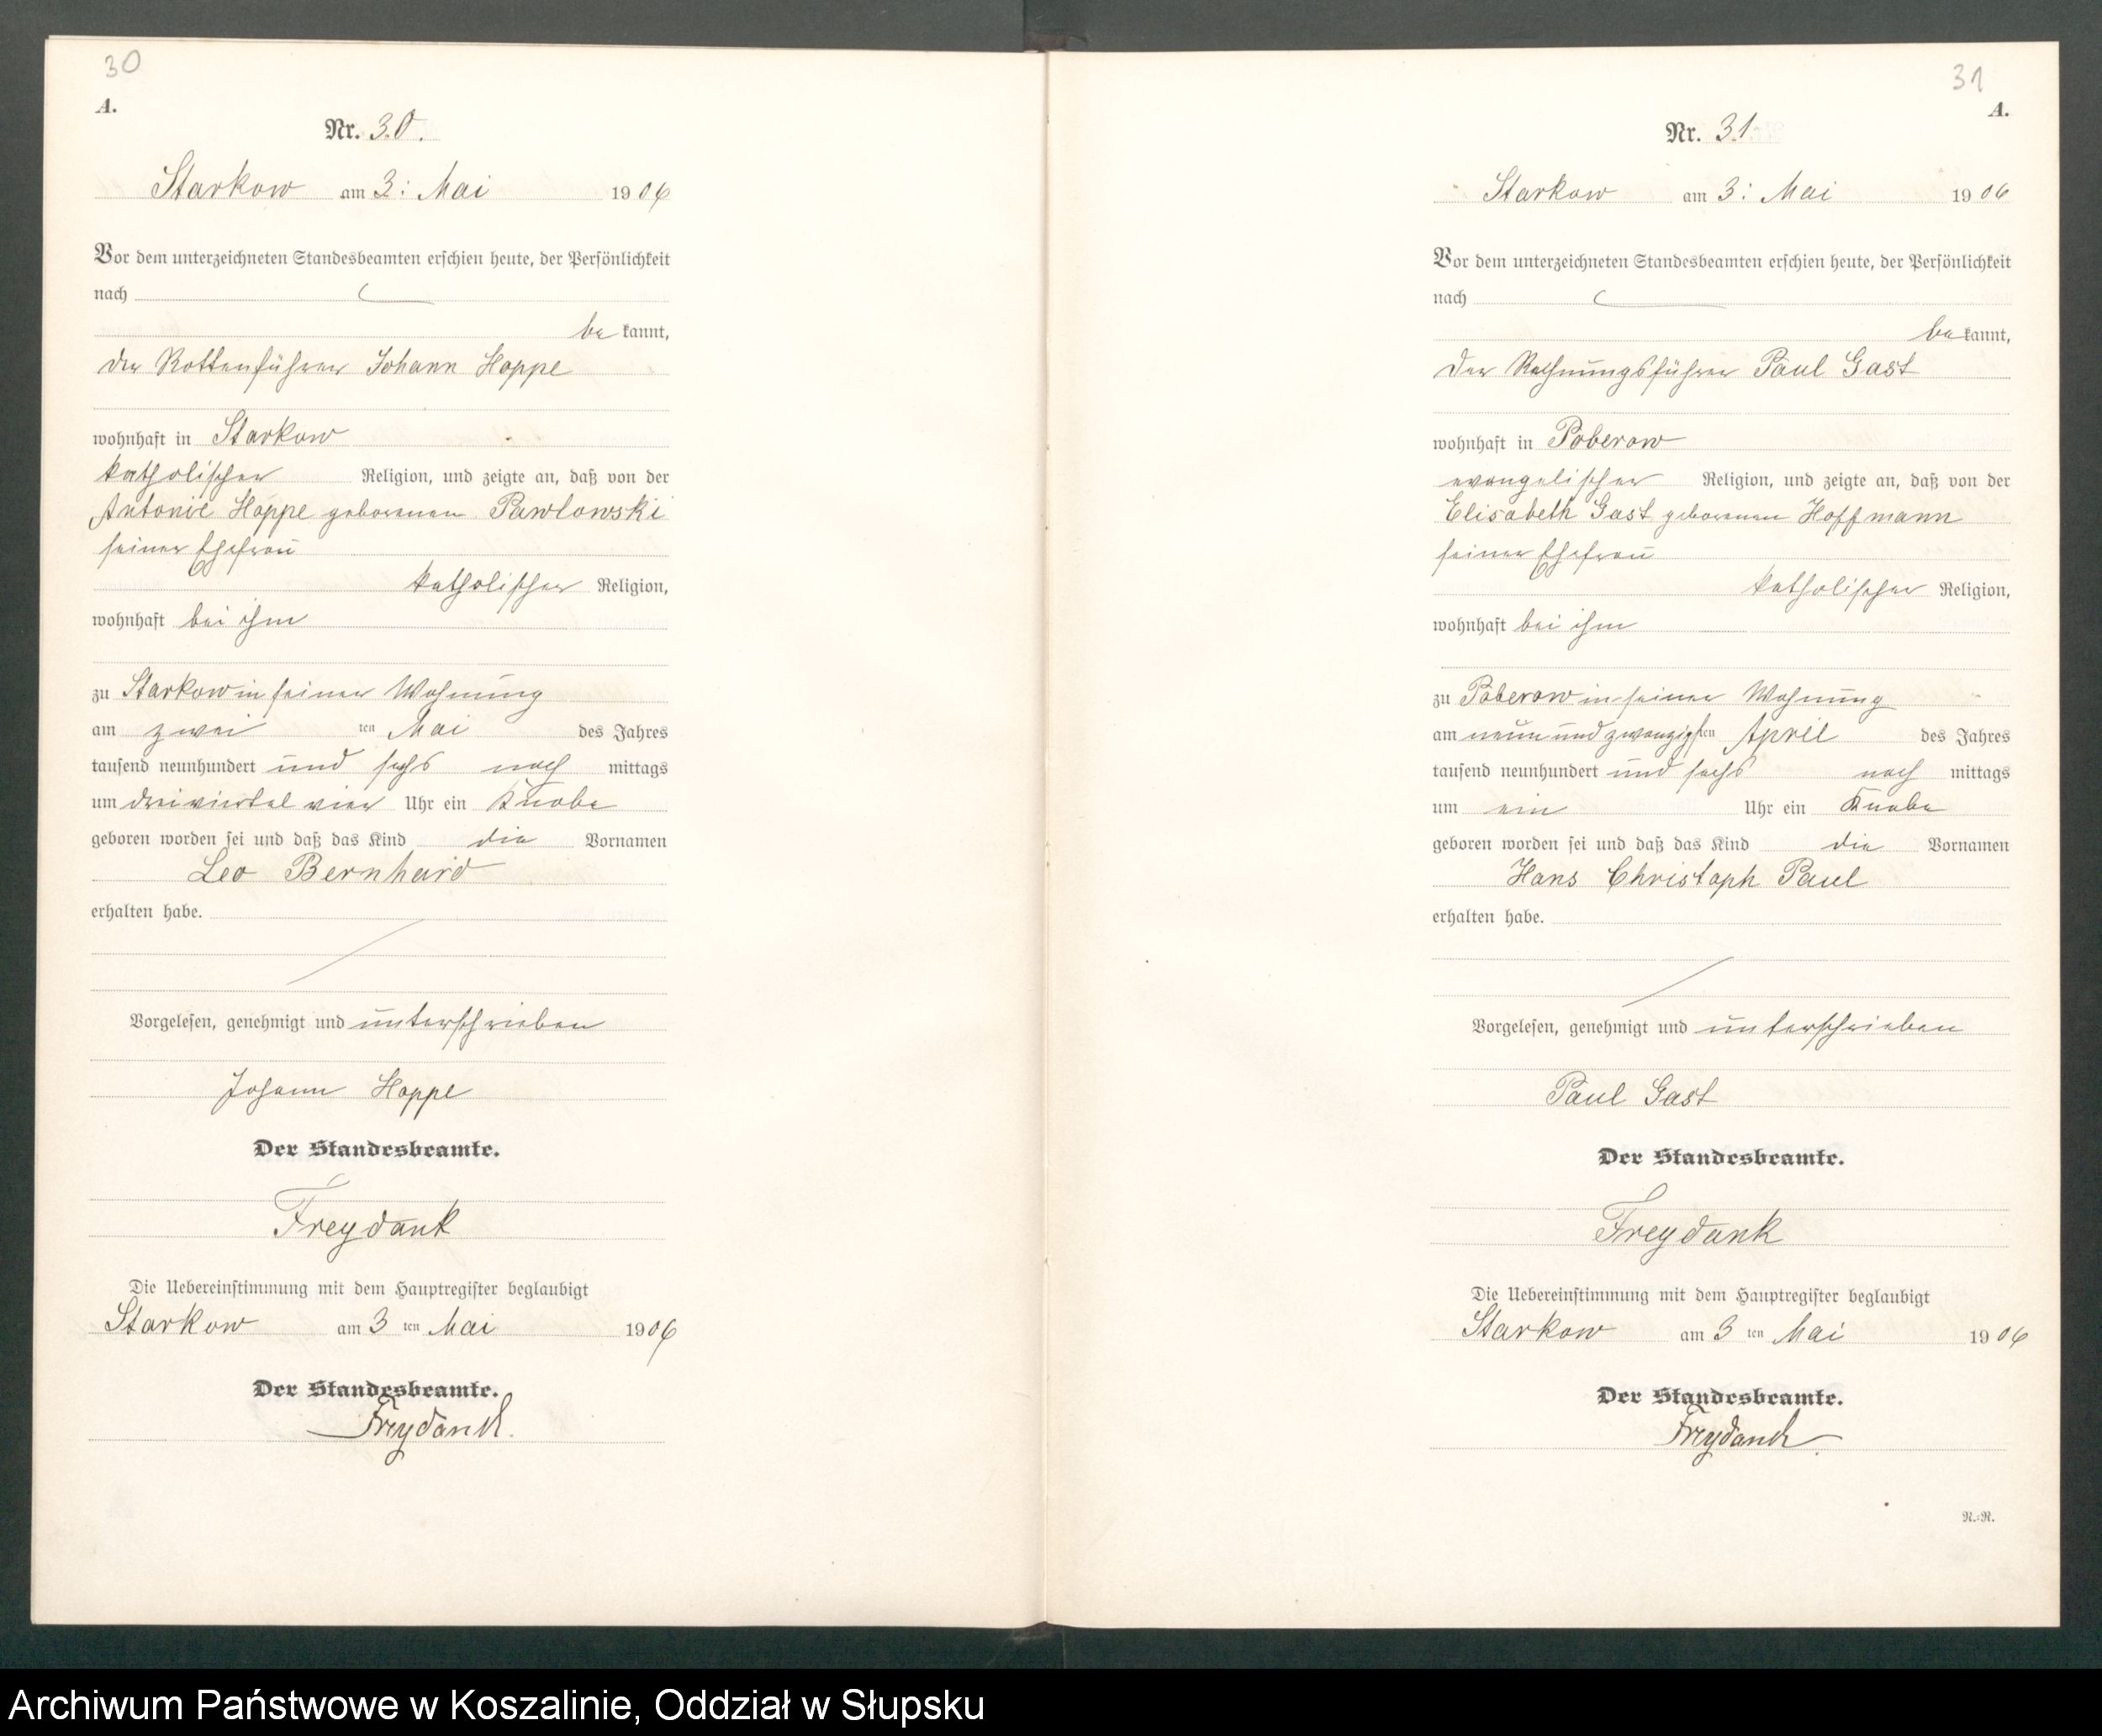 30
A.
Nr. 30.
Starkow am 3: Mai 1906
Vor dem unterzeichneten Standesbeamten erschien heute, der Persönlichkeit
nach
be kannt,
der Rottenführer Johann Hoppe
wohnhaft in Starkow
katholischer Religion, und zeigte an, daß von der
Antonie Hoppe geborenen Pawlowski
seiner Ehefrau
katholischer Religion,
wohnhaft bei ihm
zu Starkow in seiner Wohnung
am zwei ten Mai des Jahres
tausend neunhundert und sechs nach mittags
um dreiviertel vier Uhr ein Knabe
geboren worden sei und daß das Kind die Vornamen
Leo Bernhard
erhalten habe.
Vorgelesen, genehmigt und unterschrieben
Johann Hoppe
Der Standesbeamte.
Freydank
Die Uebereinstimmung mit dem Hauptregister beglaubigt
Starkow am 3 ten Mai 1906
Der Standesbeamte.
Freydank.
31
A.
Nr. 31
Starkow am 3: Mai 1906
Vor dem unterzeichneten Standesbeamten erschien heute, der Persönlichkeit
nach
be kannt,
der Rechnungsführer Paul Gast
wohnhaft in Poberow
evangelischer Religion, und zeigte an, daß von der
Elisabeth Gast geborenen Hoffmann
seiner Ehefrau
katholischer Religion,
wohnhaft bei ihm
zu Poberow in seiner Wohnung
am neun und zwanzigsten April des Jahres
tausend neunhundert und sechs nach mittags
um ein Uhr ein Knabe
geboren worden sei und daß das Kind die Vornamen
Hans Christoph Paul
erhalten habe.
Vorgelesen, genehmigt und unterschrieben
Paul Gast
Der Standesbeamte.
Freydank
Die Uebereinstimmung mit dem Hauptregister beglaubigt
Starkow am 3 ten Mai 1906
Der Standesbeamte.
Freydank.
R.=R.
Archiwum Państwowe w Koszalinie, Oddział w Słupsku